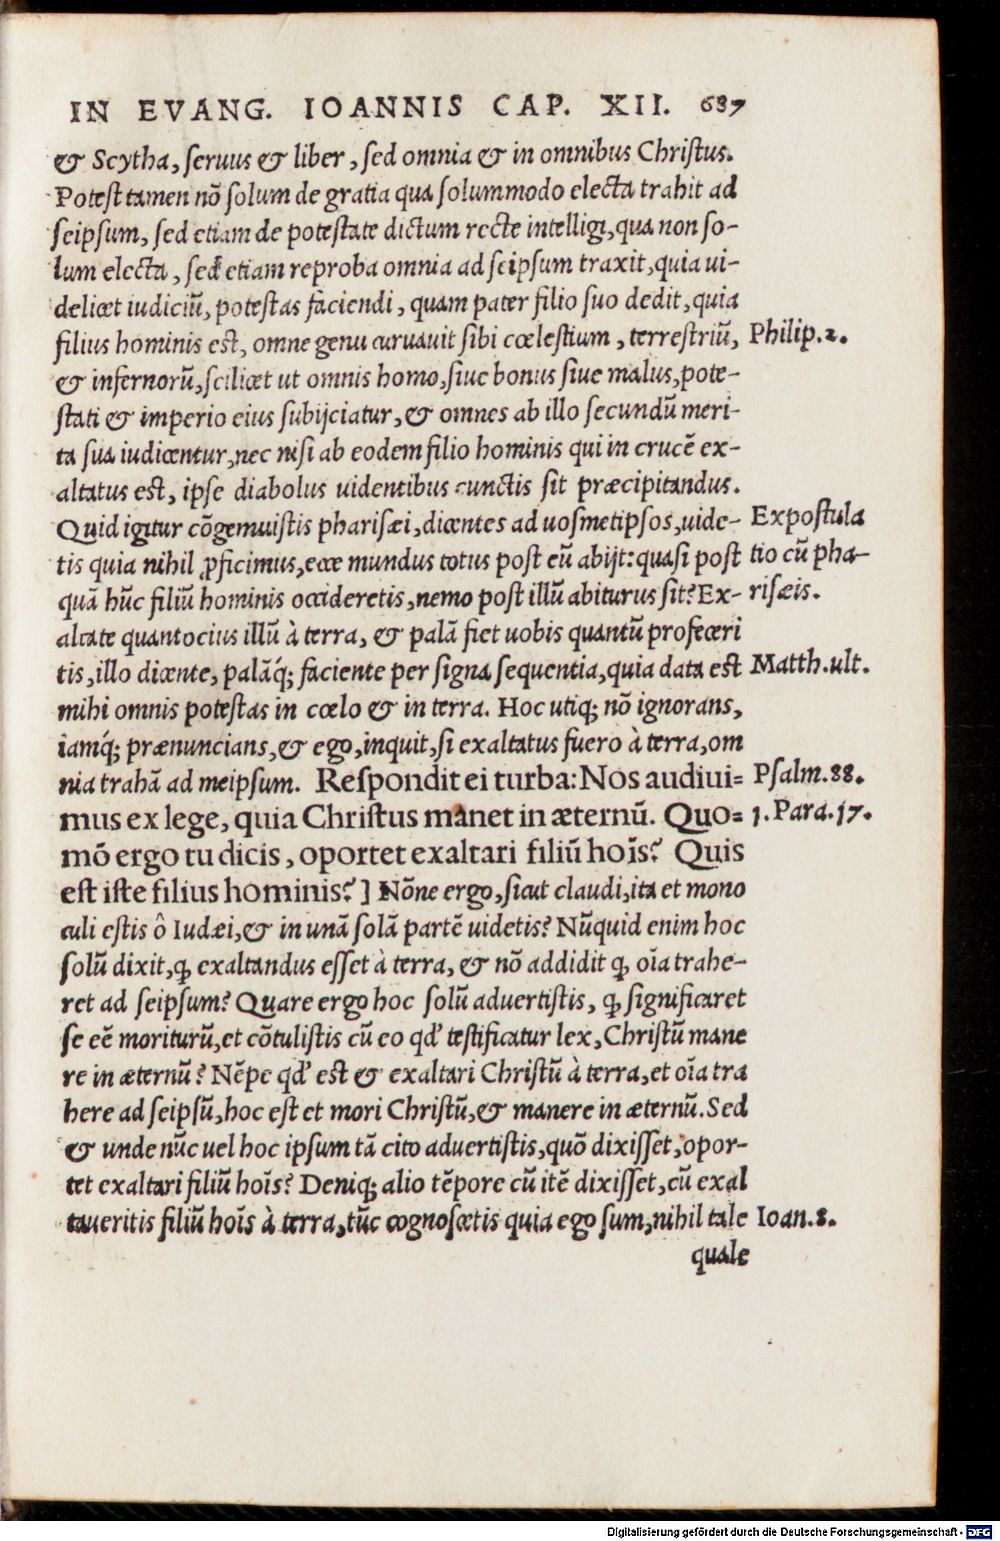 IN EVANG. IOANNIS CAP. XII. 687
& Scytha, ſeruus & liber, ſed omnia & in omnibus Chriſtus.
Poteſt tamen nō ſolum de gratia qua ſolummodo electa trahit ad
ſeipſum, ſed etiam de poteſtate dictum recte intelligi, qua non ſo-
lum electa, ſed etiam reproba omnia ad ſeipſum traxit, quia ui-
delicet iudiciū, poteſtas faciendi, quam pater filio ſuo dedit, quia
filius hominis eſt, omne genu curuauit ſibi cœleſtium, terreſtriū, Philip.2.
& infernorū, ſcilicet ut omnis homo, ſiue bonus ſiue malus, pote-
ſtati & imperio eius ſubijciatur, & omnes ab illo ſecundū meri-
ta ſua iudicentur, nec niſi ab eodem filio hominis qui in crucē ex-
altatus eſt, ipſe diabolus uidentibus cunctis ſit præcipitandus.
Quid igitur cōgemuiſtis phariſæi, dicentes ad uoſmetipſos, uide- Expoſtula
tis quia nihil ꝓficimus, ecce mundus totus poſt eū abijt: quaſi poſt tio cū pha-
quā hūc filiū hominis occideretis, nemo poſt illū abiturus ſit? Ex- riſæis.
altate quantocius illū à terra, & palā fiet uobis quantū profeceri
tis, illo dicente, palāq́; faciente per ſigna ſequentia, quia data eſt Matth.ult.
mihi omnis poteſtas in cœlo & in terra. Hoc utiq; nō ignorans,
iamq́; prænuncians, & ego, inquit, ſi exaltatus fuero à terra, om
nia trahā ad meipſum. Reſpondit ei turba: Nos audiui= Pſalm.88.
mus ex lege, quia Chriſtus manet in æternū. Quo= 1.Para.17.
mō ergo tu dicis, oportet exaltari filiū hoīs? Quis
eſt iſte filius hominis?] Nōne ergo, ſicut claudi, ita et mono
culi eſtis ô Iudæi, & in unā ſolā partē uidetis? Nūquid enim hoc
ſolū dixit, ꝙ exaltandus eſſet à terra, & nō addidit ꝙ oīa trahe-
ret ad ſeipſum? Quare ergo hoc ſolū aduertiſtis, ꝙ ſignificaret
ſe eē moriturū, et cōtuliſtis cū eo qd' teſtificatur lex, Chriſtū mane
re in æternū? Nēpe qd' eſt & exaltari Chriſtū à terra, et oīa tra
here ad ſeipſū, hoc eſt et mori Chriſtū, & manere in æternū. Sed
& unde nūc uel hoc ipſum tā cito aduertiſtis, quō dixiſſet, opor-
tet exaltari filiū hoīs? Deniq; alio tēpore cū itē dixiſſet, cū exal
taueritis filiū hoīs à terra, tūc cognoſcetis quia ego ſum, nihil tale Ioan.8.
quale
Digitalisierung gefördert durch die Deutsche Forschungsgemeinschaft - DFG